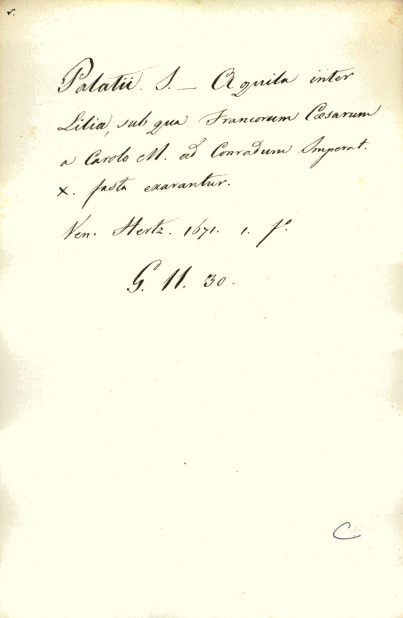 Palatii. S. — Aquila inter
Lilia, sub qua Francorum Cæsarum
a Carolo M. ad Conradum Imperat.
X. fasta exarantur.
Ven. Hertz. 1671. 1. fº.
G. 11. 30.
C